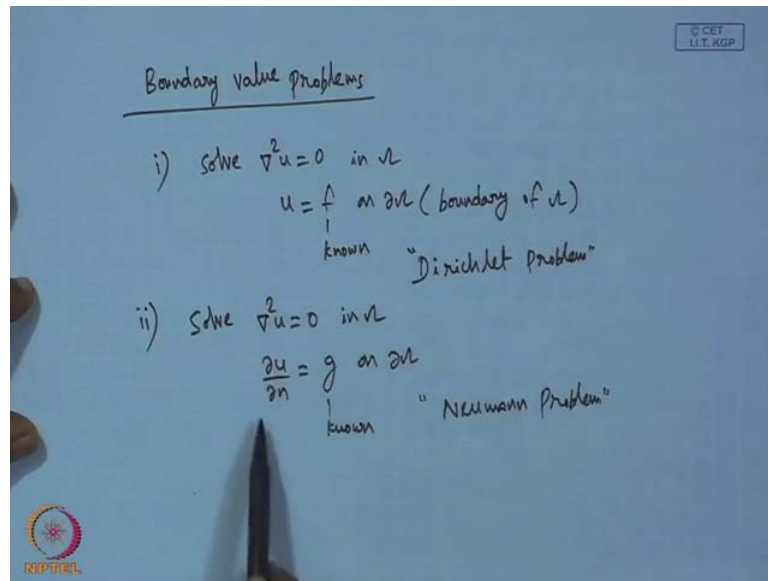 © CET
I.I.T. KGP
Boundary value problems
i) solve ∇²u = 0 in Ω
u = f on ∂Ω (boundary of Ω)
known
"Dirichlet problem"
ii) Solve ∇²u = 0 in Ω
∂u/∂n = g on ∂Ω
known
"Neumann Problem"
NPTEL